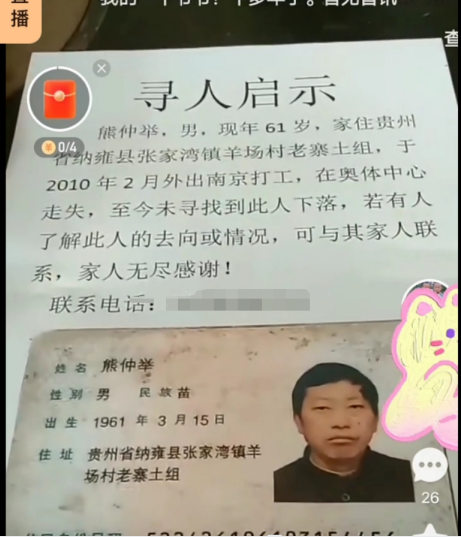 直播
查
寻人启示
0/4
熊仲举，男，现年 61 岁，家住贵州
省纳雍县张家湾镇羊场村老寨土组，于
2010 年 2 月外出南京打工，在奥体中心
走失，至今未寻找到此人下落，若有人
了解此人的去向或情况，可与其家人联
系，家人无尽感谢！
联系电话：
姓名 熊仲举
性别 男 民族 苗
出生 1961 年 3 月 15 日
住址 贵州省纳雍县张家湾镇羊
场村老寨土组
26